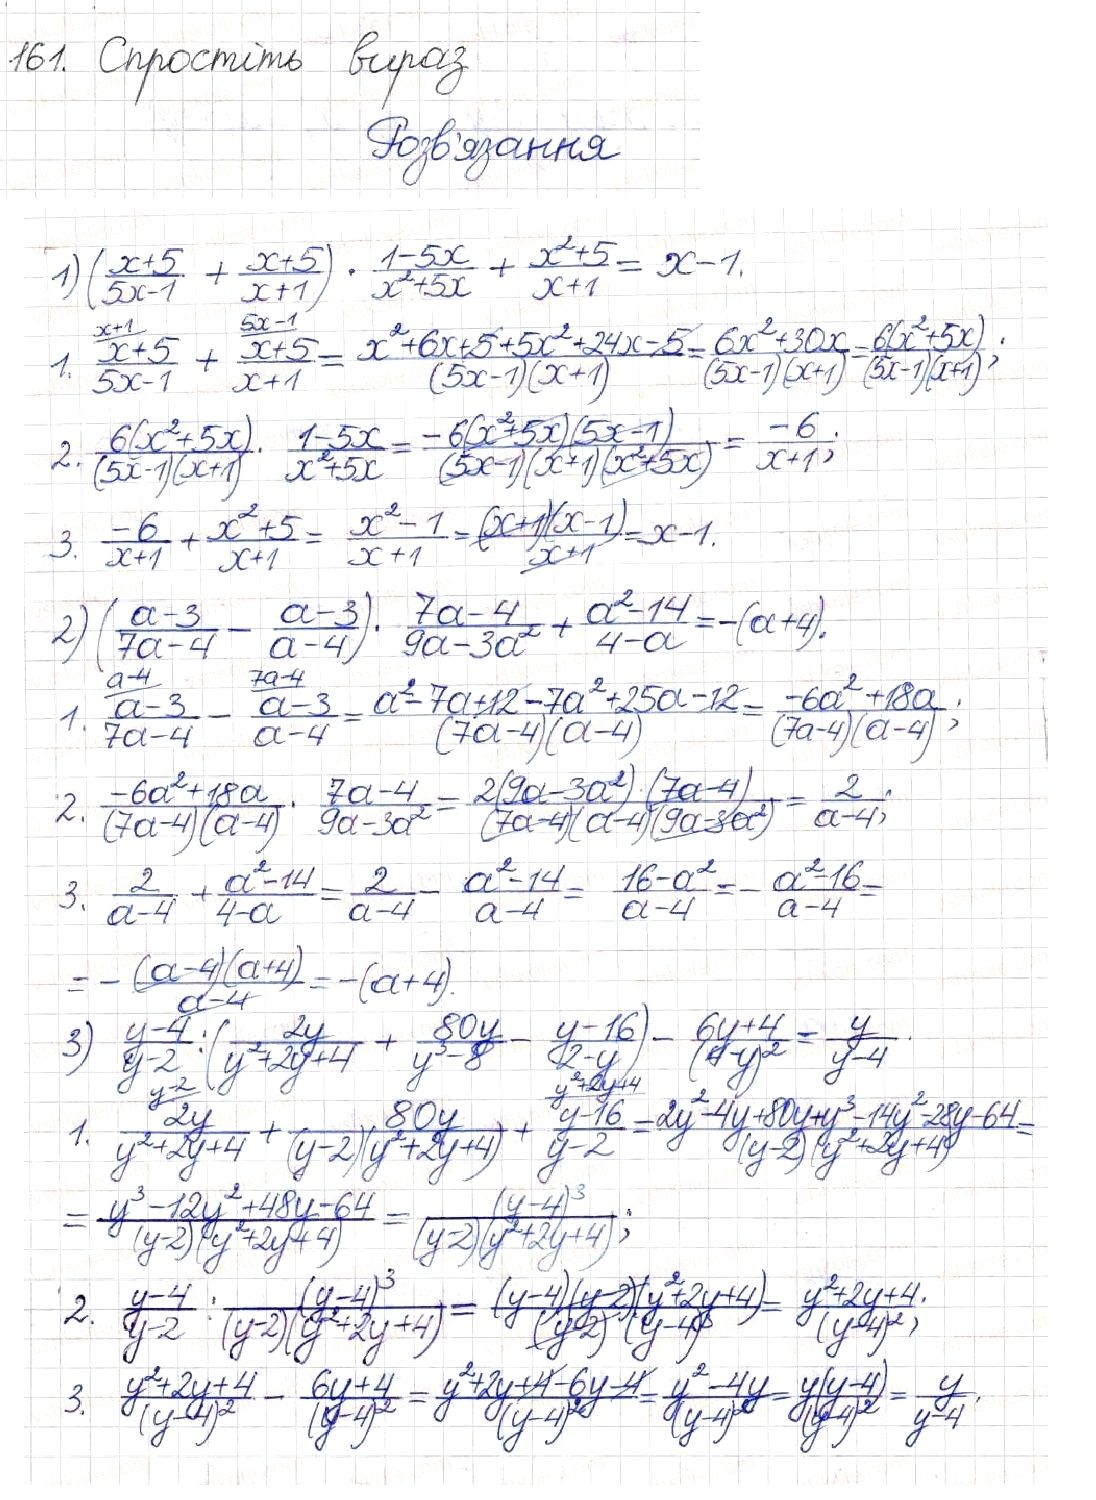 161. Спростіть вираз
Розв'язання
1) ((x+5)/(5x-1) + (x+5)/(x+1)) · (1-5x)/(x²+5x) + (x²+5)/(x+1) = x-1.
x+1 5x-1
1. (x+5)/(5x-1) + (x+5)/(x+1) = (x²+6x+5+5x²+24x-5)/((5x-1)(x+1)) = (6x²+30x)/((5x-1)(x+1)) = 6(x²+5x)/((5x-1)(x+1));
2. 6(x²+5x)/((5x-1)(x+1)) · (1-5x)/(x²+5x) = -6(x²+5x)(5x-1)/((5x-1)(x+1)(x²+5x)) = -6/(x+1);
3. -6/(x+1) + (x²+5)/(x+1) = (x²-1)/(x+1) = (x+1)(x-1)/(x+1) = x-1.
2) ((a-3)/(7a-4) - (a-3)/(a-4)) · (7a-4)/(9a-3a²) + (a²-14)/(4-a) = -(a+4).
a-4 7a-4
1. (a-3)/(7a-4) - (a-3)/(a-4) = (a²-7a+12-7a²+25a-12)/((7a-4)(a-4)) = (-6a²+18a)/((7a-4)(a-4));
2. (-6a²+18a)/((7a-4)(a-4)) · (7a-4)/(9a-3a²) = 2(9a-3a²)·(7a-4)/((7a-4)(a-4)(9a-3a²)) = 2/(a-4);
3. 2/(a-4) + (a²-14)/(4-a) = 2/(a-4) - (a²-14)/(a-4) = (16-a²)/(a-4) = -(a²-16)/(a-4) =
= -(a-4)(a+4)/(a-4) = -(a+4).
3) (y-4)/(y-2) : (2y/(y²+2y+4) + 80y/(y³-8) - (y-16)/(2-y)) - (6y+4)/(4-y)² = y/(y-4).
y-2 y²+2y+4
1. 2y/(y²+2y+4) + 80y/((y-2)(y²+2y+4)) + (y-16)/(y-2) = (2y²-4y+80y+y³-14y²-28y-64)/((y-2)(y²+2y+4)) =
= (y³-12y²+48y-64)/((y-2)(y²+2y+4)) = (y-4)³/((y-2)(y²+2y+4));
2. (y-4)/(y-2) : (y-4)³/((y-2)(y²+2y+4)) = (y-4)(y-2)(y²+2y+4)/((y-2)(y-4)³) = (y²+2y+4)/(y-4)²;
3. (y²+2y+4)/(y-4)² - (6y+4)/(y-4)² = (y²+2y+4-6y-4)/(y-4)² = (y²-4y)/(y-4)² = y(y-4)/(y-4)² = y/(y-4).